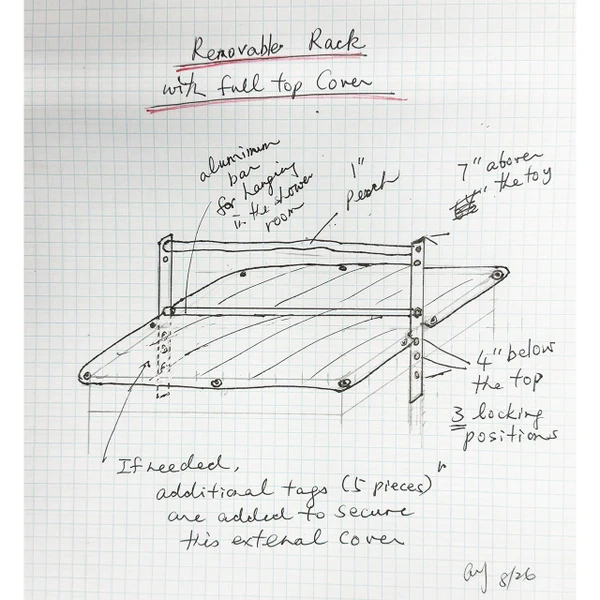 Removable Rack
with full top Cover
aluminum
bar
for hanging
in the shower
room
1"
Perch
7" above
the top
4" below
the top
3 locking
positions
If needed,
additional tags (5 pieces)
are added to secure
this external cover
8/26